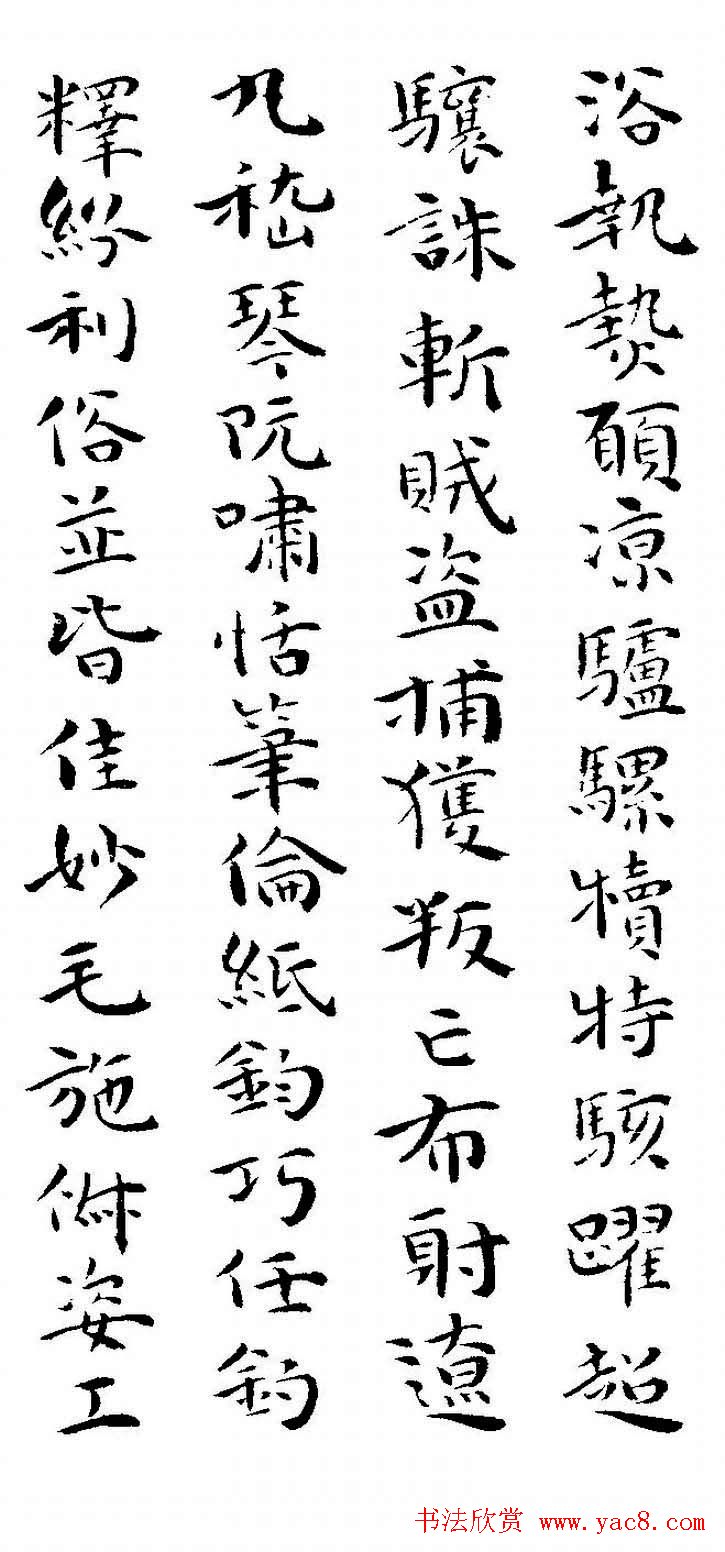 浴執熱願凉驢騾犢特駭躍超
驤誅斬賊盗捕獲叛亡布射遼
丸嵇琴阮嘯恬筆倫紙鈞巧任釣
釋紛利俗並皆佳妙毛施淑姿工
书法欣赏 www.yac8.com